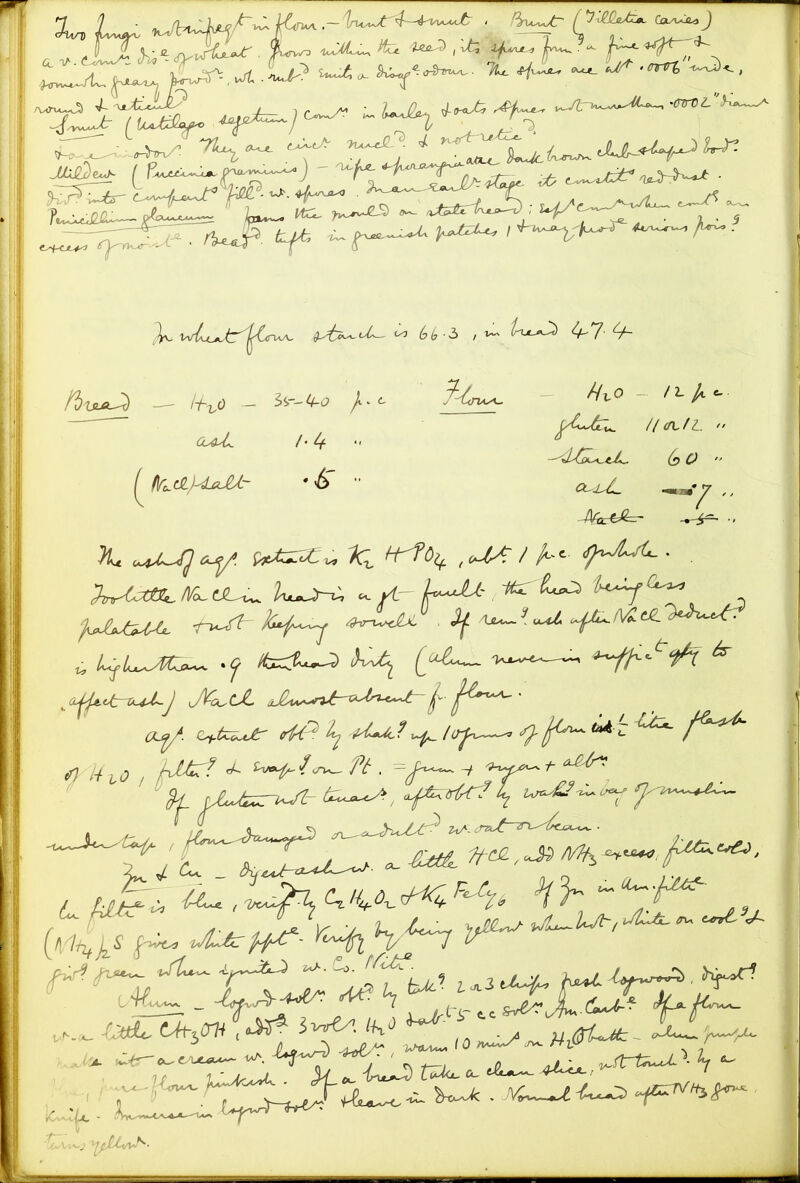 Two fungi not infreqt in flour. – bunt & smut. Bunt (Tilletia caries)
a v. comn dise of wheat. Grows within the seed, its spores formg a fine soft &
somewht greasy powdr, wh. rubd emits a disage odour. The spores are abt .0006" wide,
round & reticuld
Smut (Ustilago segetum) comn in barley & oats. Spores not more than .0002" diamr
& are inodors. They are circr nucld & not reticd.
Mildew (Puccinia graminis) – ripe sporangia are dark brown club shaped bods.
divd into compartts filld w. spores. In an earlr stage it constits red dust.
Penicillium glaucum forms the mould on stale bread; espy comn when contg an
excess of moiste. Beadd tufts in greenish patches, & may prode serious poisg

In wheat flour starch is 66.3, in bread 47.4

Bread – H2O – 35–40 p.c Flour – H2O – 12 p c.
gluten 11 or 12 "
ash 1.4 " starch 60 "
(NaCl) salt .5 " ash .7 "
NaCl .5 "
The ash of aqs. extract is K2 H PO4, abt. 1 p.c. of whole.
Too little NaCl in bread is a gt fault, the bread being less
palatable & not keeping so well. If remg ash after NaCl deductd
is higher than .9 then bread dirty (alum never in suffict qty to
affect ash) NaCl almost absent f. flour.
aqs. extract obtd by shakg up 10 grms of flour in ½ litre flask
of H2O, filterg & evapg on Pt. = gum + sugar + albn
If gluten not tenacs, after obtg by washg in bag of muslin
under tap, flour damaged or adultd w. oat or bean.
Zn & Cu – digest ash w. a little HCl, add NH3 excess, filter cold,
Cu filte is blue, verifd by C2H4O2 & K4 FeCy6 If Zn in Am. filte
(NH4)2S gives white ppte. Verify by being yellow when hot, white on coolg &
givg green when ignited w. Co. Nite.
Alum – logwd soln obtd by takg 2 or 3 chips fresh logwood, digestg
w. a little CH3OH, addg 3 vols. H2O & abt 5 cc soln Am. Carbe. If a flour
make into a cream w. logwd soln, warm 10 mins on H2O bath – alum purple
blue, pure flour pinkish. If a bread take a clean slice, not touchd by a
knife. Immerse in logwd soln & leave in dark. Normal bread after NH3 gone
turns yellow.